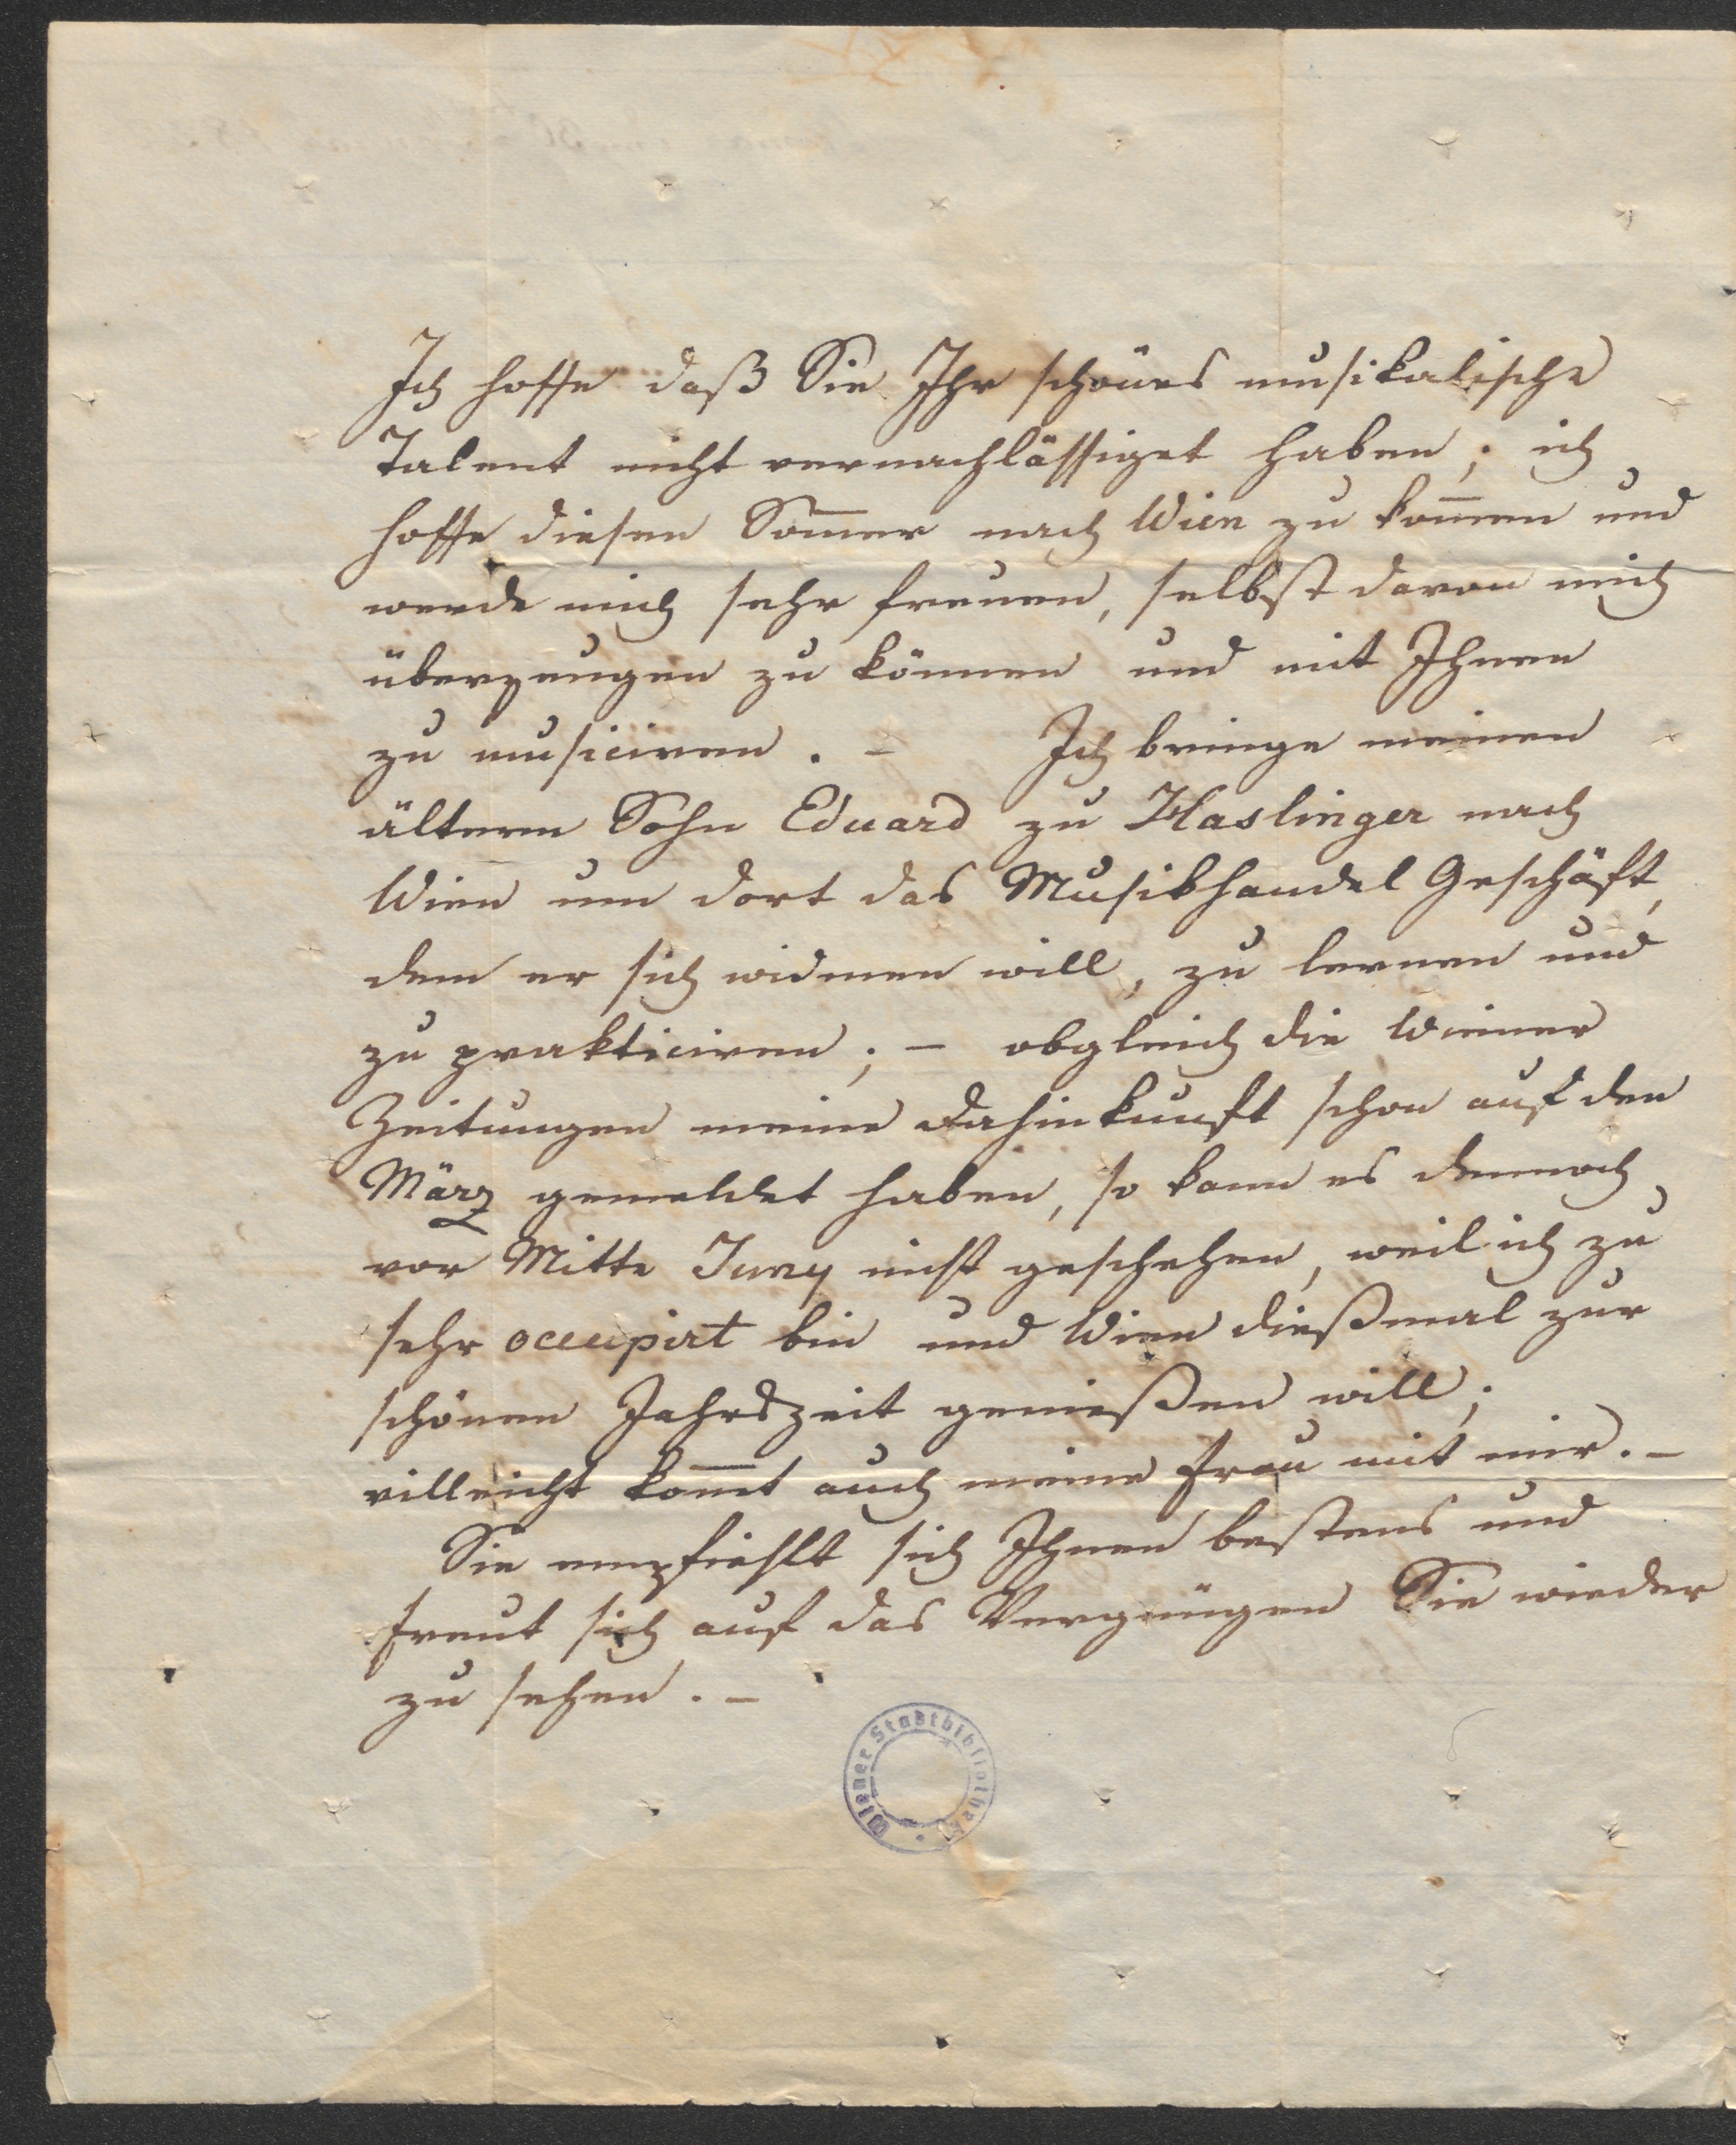 Ich hoffe daß Sie Ihr schönes musikalische
Talent nicht vernachlässiget haben; ich
hoffe diesen Som̅er nach Wien zu kom̅en und
werde mich sehr freuen, selbst davon mich
überzeugen zu können und mit Ihnen
zu musiciren. – Ich bringe meinen
ältern Sohn Eduard zu Haslinger nach
Wien um dort das Musikhandel Geschäft,
dem er sich widmen will, zu lernen und
zu prakticiren; – obgleich die Wiener
Zeitungen meine Dahinkunft schon auf den
März gemeldet haben, so kann es dennoch
vor Mitte Juny nicht geschehen, weil ich zu
sehr occupirt bin und Wien dießmal zur
schönen Jahrszeit genießen will;
villeicht kom̅t auch meine Frau mit mir. –
Sie empfiehlt sich Ihnen bestens und
freut sich auf das Vergnügen Sie wieder
zu sehen. –
Wiener Stadtbibliothek